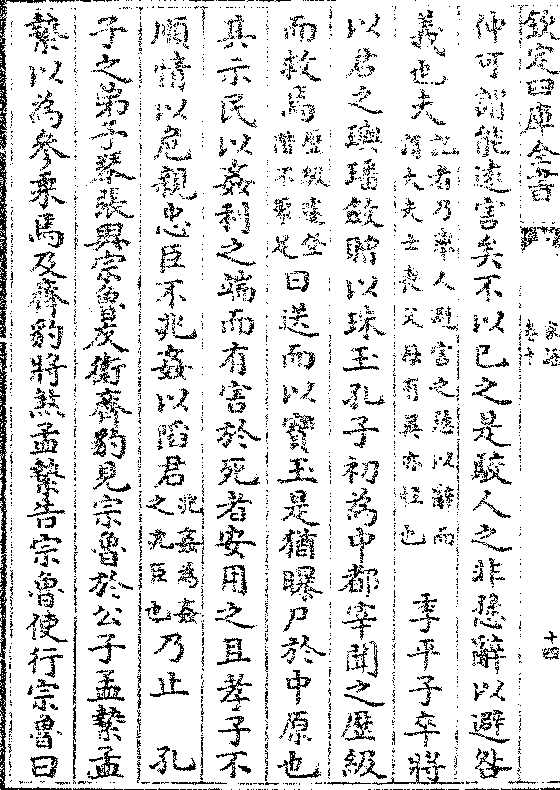 欽定四庫全書
卷十
十四
仲可謂能遠害矣不以已之是駮人之非愻辭以避咎
義也夫記者乃舉人避害之愻以辭而謂大夫士喪父母有異亦怪也　季平子卒將
以君之璵璠斂贈以珠玉孔子初為中都宰聞之歴級
而救焉歴級遽登階不聚足曰送而以寳玉是猶曝尸於中原也
其示民以姦利之端而有害於死者安用之且孝子不
順情以危親忠臣不兆姦以陷君兆姦為姦之兆臣也乃止　孔
子之弟子琴張與宗魯友衛齊豹見宗魯於公子孟縶孟
縶以為參乘焉及齊豹將煞孟縶告宗魯使行宗魯曰